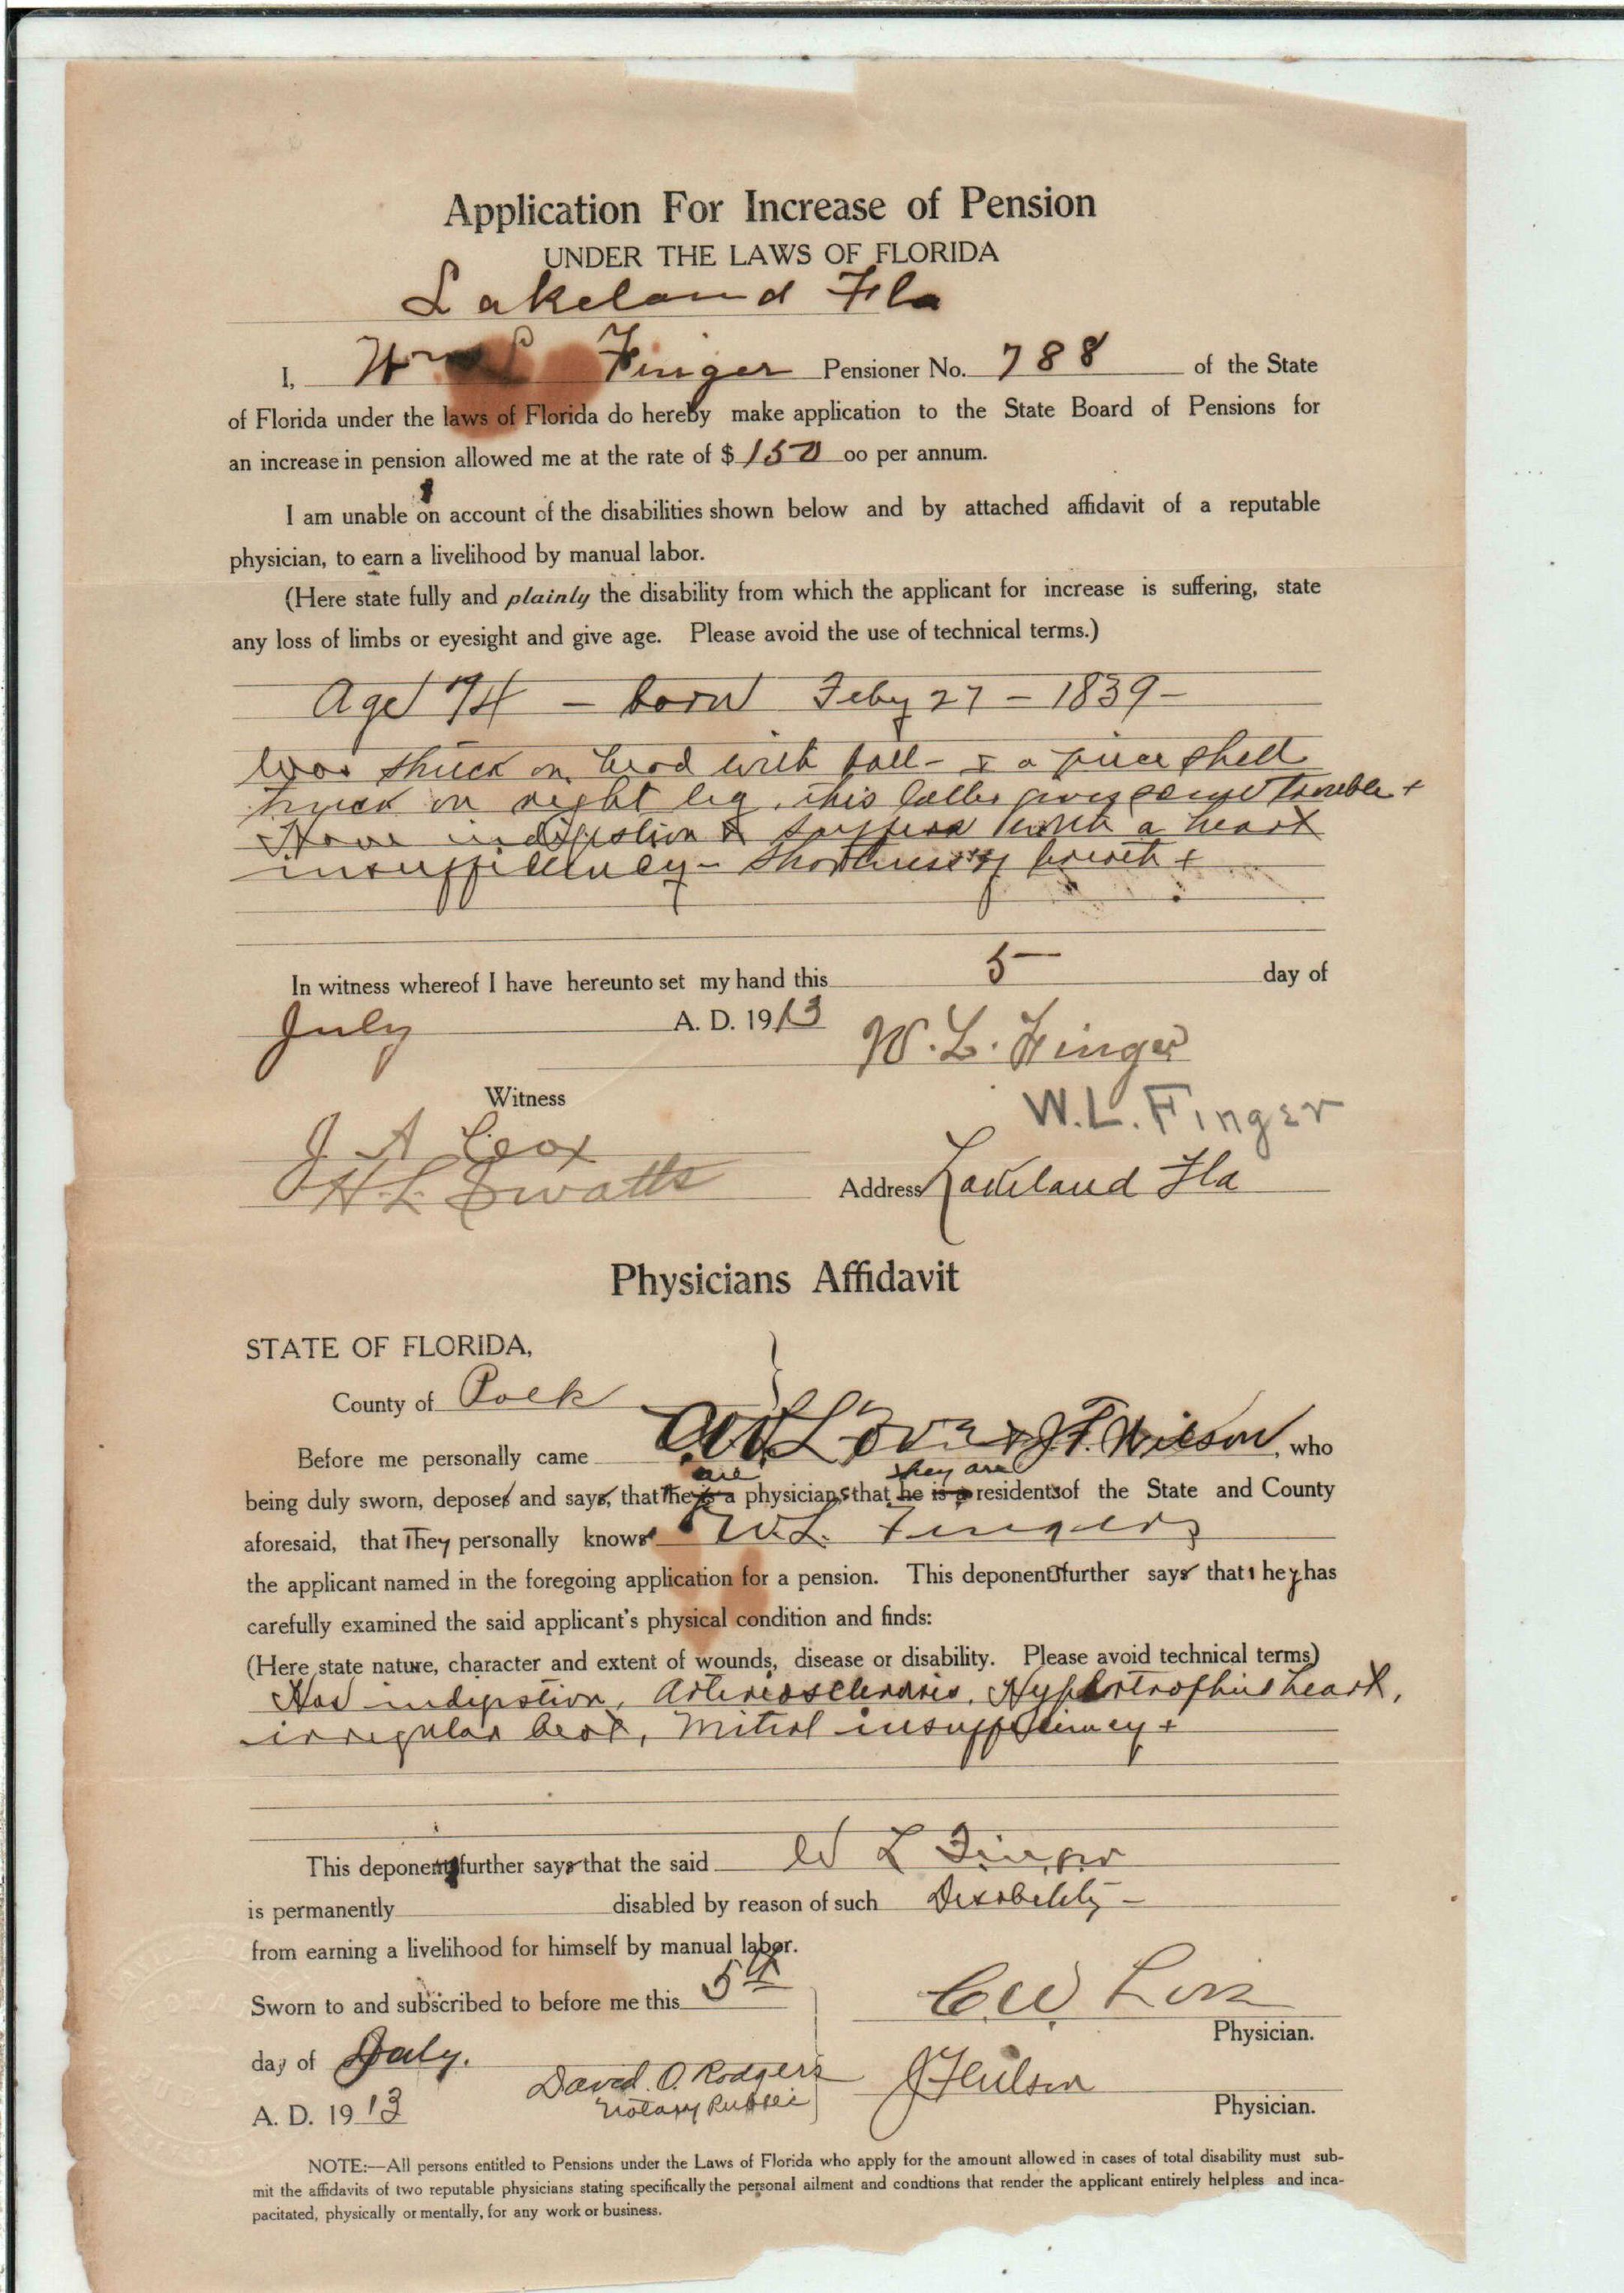 Application For Increase of Pension
UNDER THE LAWS OF FLORIDA
Lakeland Fla
I, Wm L Finger Pensioner No. 788 of the State
of Florida under the laws of Florida do hereby make application to the State Board of Pensions for
an increase in pension allowed me at the rate of $ 150 oo per annum.
I am unable on account of the disabilities shown below and by attached affidavit of a reputable
physician, to earn a livelihood by manual labor.
(Here state fully and plainly the disability from which the applicant for increase is suffering, state
any loss of limbs or eyesight and give age. Please avoid the use of technical terms.)
Age 74 - born Feby 27 - 1839 -
Was struck on head with ball - & a piece shell
struck on right leg, this latter gives some trouble +
Have indigestion & suffers with a heart
insufficiency - Shortness of breath +
In witness whereof I have hereunto set my hand this 5 day of
July A. D. 1913
W. L. Finger
Witness
W.L. Finger
J A Cox
H L Swatts
Address Lakeland Fla
Physicians Affidavit
STATE OF FLORIDA,
County of Polk
Before me personally came J. F. Wilson, who
being duly sworn, depose and say, that they are physicians that they are residents of the State and County
aforesaid, that They personally know W. L. Finger
the applicant named in the foregoing application for a pension. This deponents further say that they has
carefully examined the said applicant's physical condition and finds:
(Here state nature, character and extent of wounds, disease or disability. Please avoid technical terms)
Has indigestion, Arteriosclerosis, Hypertrophied heart,
irregular beat, Mitral insufficiency +
This deponents further say that the said W L Finger
is permanently disabled by reason of such Disability -
from earning a livelihood for himself by manual labor.
Sworn to and subscribed to before me this 5th
C. W.
Physician.
day of July.
David. O. Rodgers
Notary Public
J F Wilson
Physician.
A. D. 1913
NOTE:—All persons entitled to Pensions under the Laws of Florida who apply for the amount allowed in cases of total disability must sub-
mit the affidavits of two reputable physicians stating specifically the personal ailment and condtions that render the applicant entirely helpless and inca-
pacitated, physically or mentally, for any work or business.